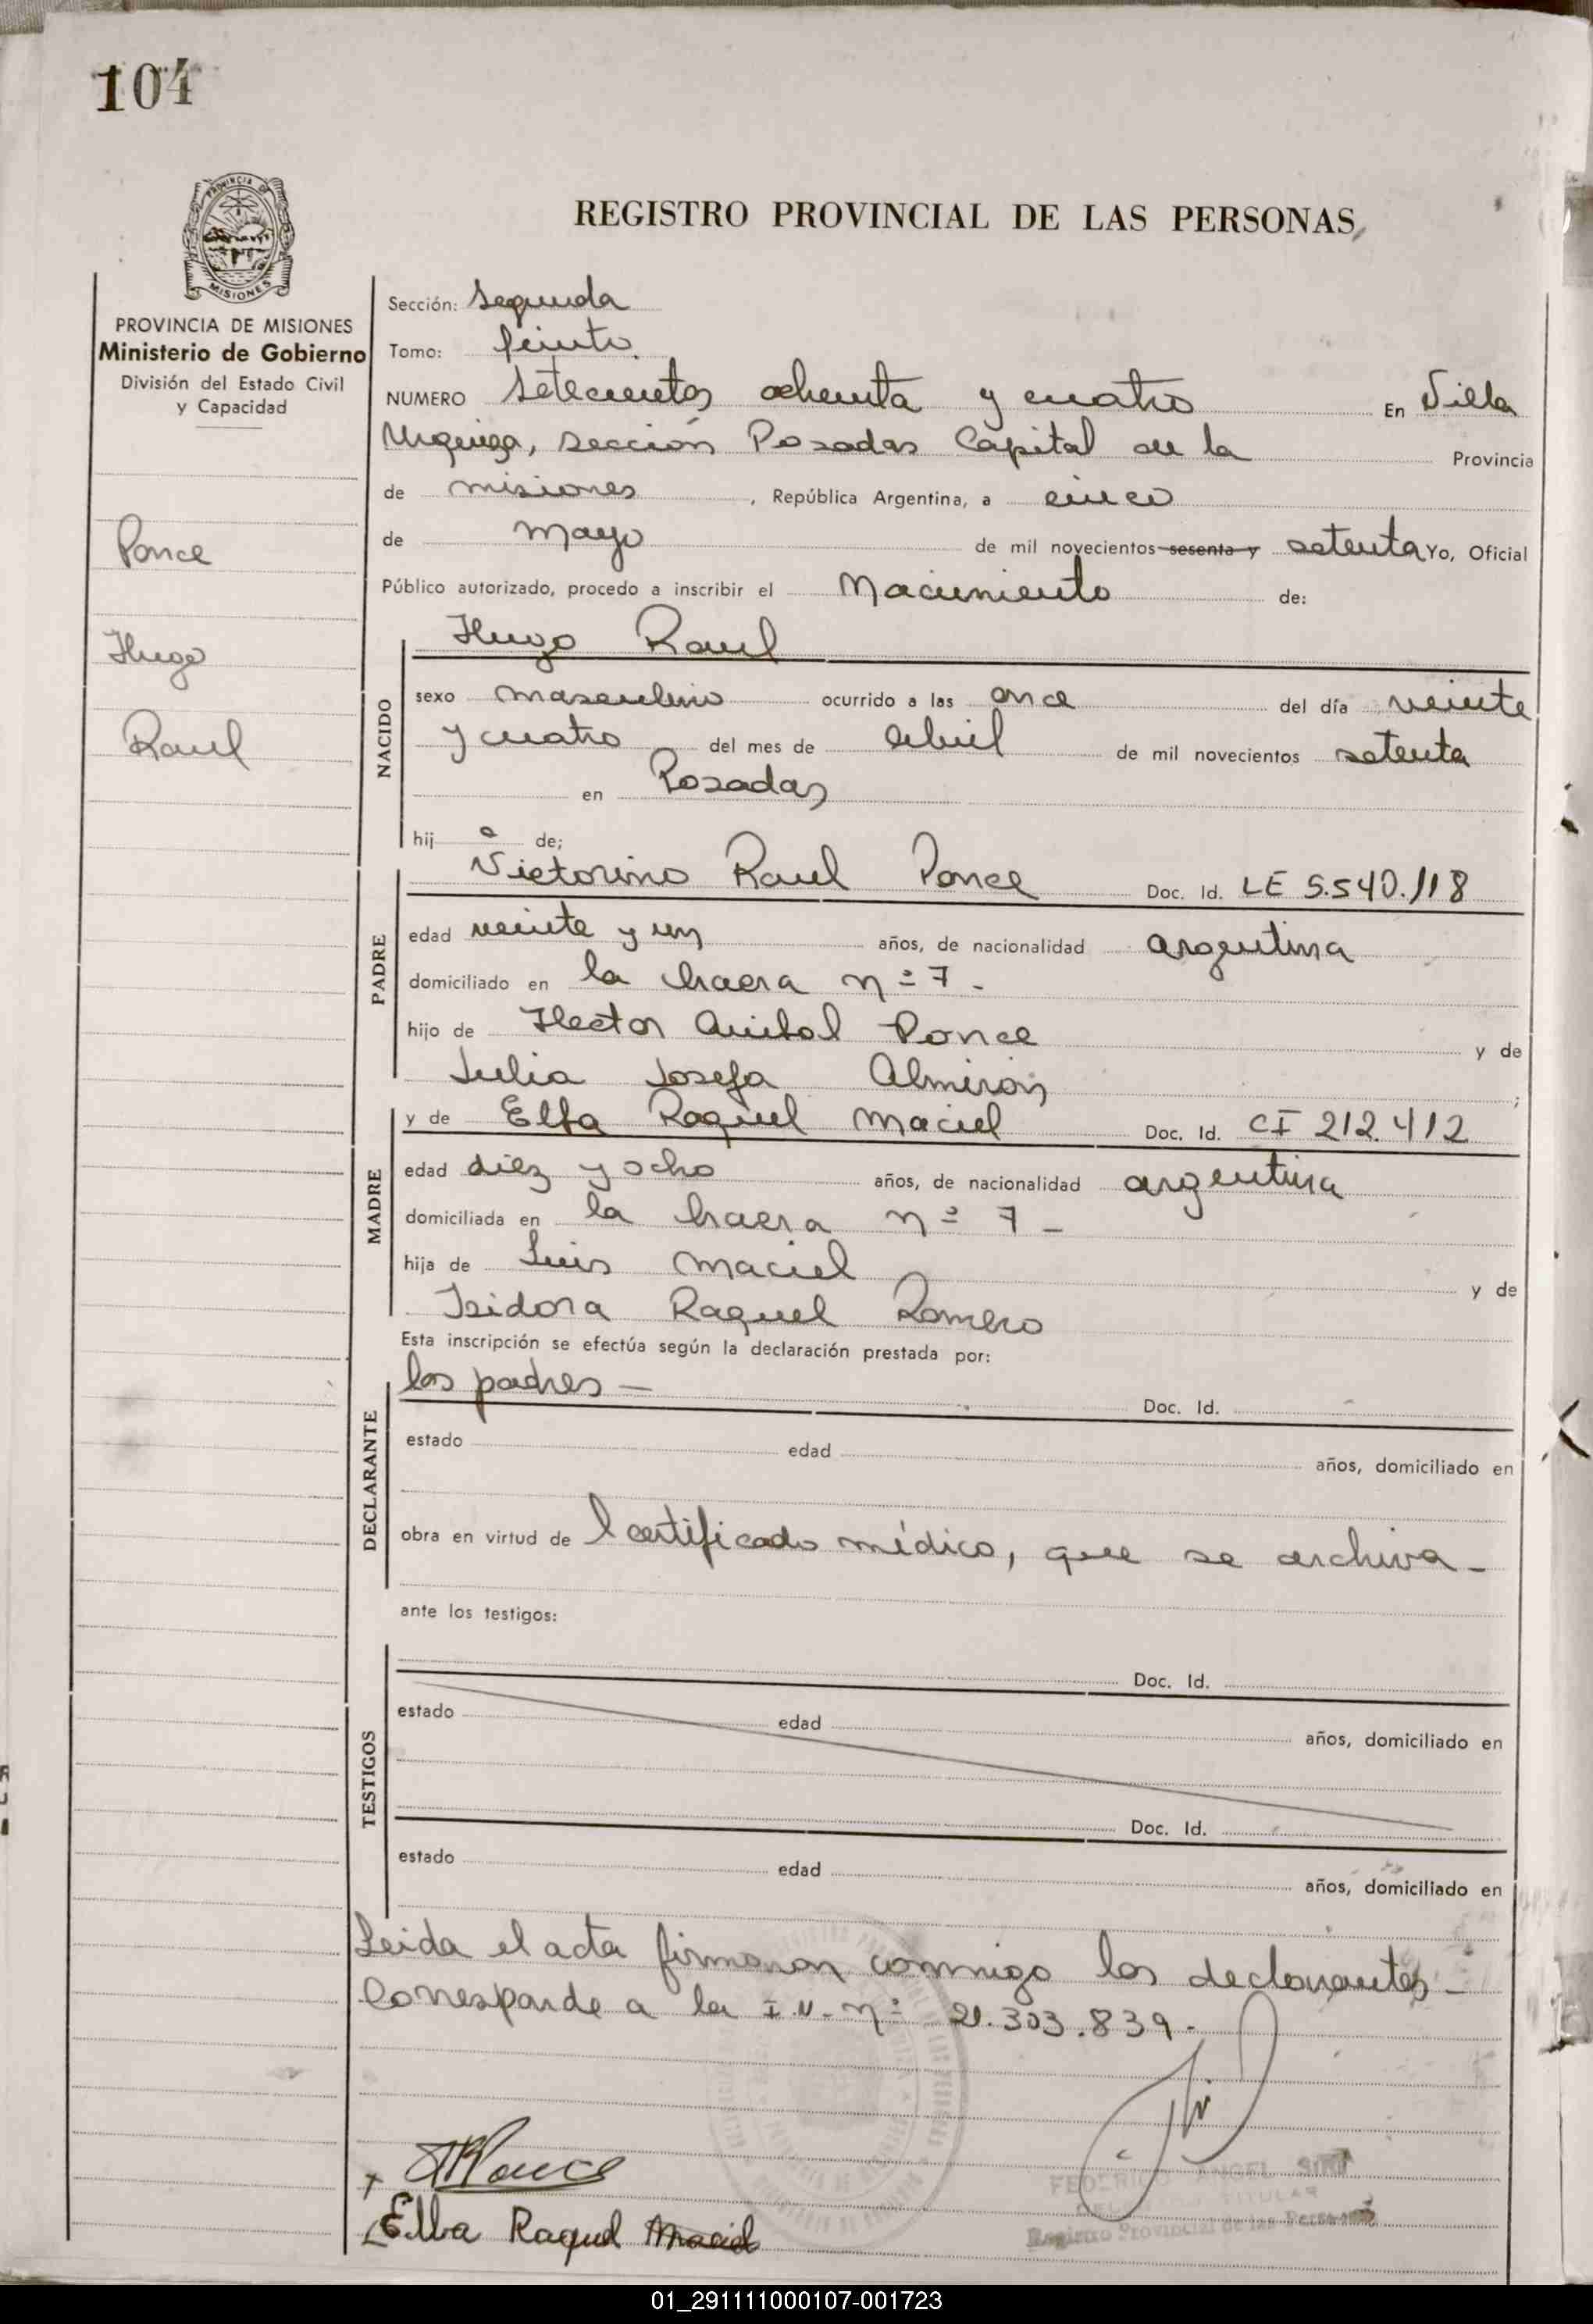 104
PROVINCIA DE
MISIONES
REGISTRO PROVINCIAL DE LAS PERSONAS
PROVINCIA DE MISIONES
Ministerio de Gobierno
División del Estado Civil
y Capacidad
Ponce
Hugo
Raul
Sección: Segunda
Tomo:
NUMERO Setecientos ochenta y cuatro En Villa
Urquiza, sección Posadas Capital de la Provincia
de misiones, República Argentina, a cinco
de mayo de mil novecientos sesenta y setenta Yo, Oficial
Público autorizado, procedo a inscribir el Nacimiento de:
NACIDO
Hugo Raul
sexo masculino ocurrido a las once del día veinte
y cuatro del mes de abril de mil novecientos setenta
en Posadas
hij o de;
PADRE
Victorino Raul Ponce Doc. Id. LE 5.540.118
edad veinte y un años, de nacionalidad argentina
domiciliado en la chacra nº 7 -
hijo de Hector Anibal Ponce y de
Julia Josefa Almirón;
MADRE
y de Elba Raquel Maciel Doc. Id. CI 212.412
edad diez y ocho años, de nacionalidad argentina
domiciliada en la chacra nº 7 -
hija de Luis Maciel y de
Isidora Raquel Romero
Esta inscripción se efectúa según la declaración prestada por:
DECLARANTE
los padres - Doc. Id.
estado edad años, domiciliado en
obra en virtud de l certificado médico, que se archiva -
ante los testigos:
TESTIGOS
Doc. Id.
estado edad años, domiciliado en
Doc. Id.
estado edad años, domiciliado en
Leida el acta firmaron conmigo los declarantes -
Corresponde a la I.N. nº 21.303.839 -
Ponce
Elba Raquel Maciel
FEDERICO ANGEL
TITULAR
Registro Provincial de las Personas
01_291111000107-001723